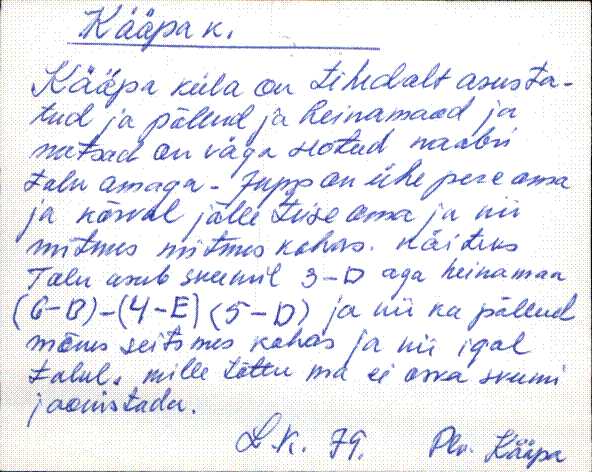 Kääpa k.
Kääpa küla on tihedalt asusta-
tud ja põllud ja heinamaad ja
metsad on väga seotud naabri
talu omaga - Jupp on ühe pere oma
ja kõrval jälle teise oma ja nii
mitmes mitmes kohas. Näiteks
Talu asub skeemil 3-D aga heinamaa
(6-B)-(4-E) (5-D) ja nii ka põllud
mõnes seitsmes kohas ja nii igal
talul, mille tõttu ma ei oska skeemi
joonistada.
L.K. 79. Kääpa